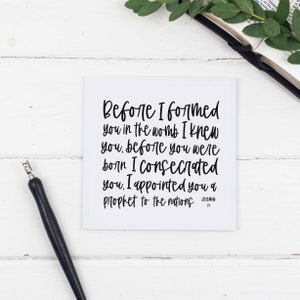 Before I formed
you in the womb I knew
you, before you were
born I consecrated
you, I appointed you a
prophet to the nations